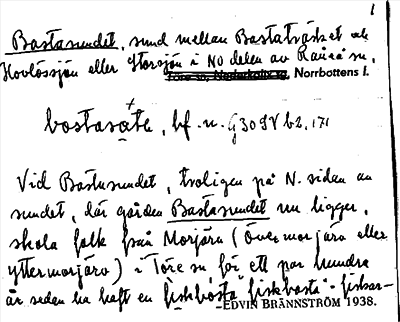 1
Bastasundet, sund mellan Bastaträsket och
Hovlössjön eller Storsjön i NO delen av Råneå sn,
Norrbottens l.
bostasate, bf. n. G 3098 b2, 171
Vid Bastasundet, troligen på N. sidan av
sundet, där gården Bastasundet nu ligger,
skola folk från Morjärv (Övermorjärv eller
yttermorjärv) i Töre sn för ett par hundra
år sedan ha haft en fiskbàsta "fiskbasta" - fiskar-
EDVIN BRÄNNSTRÖM 1938.